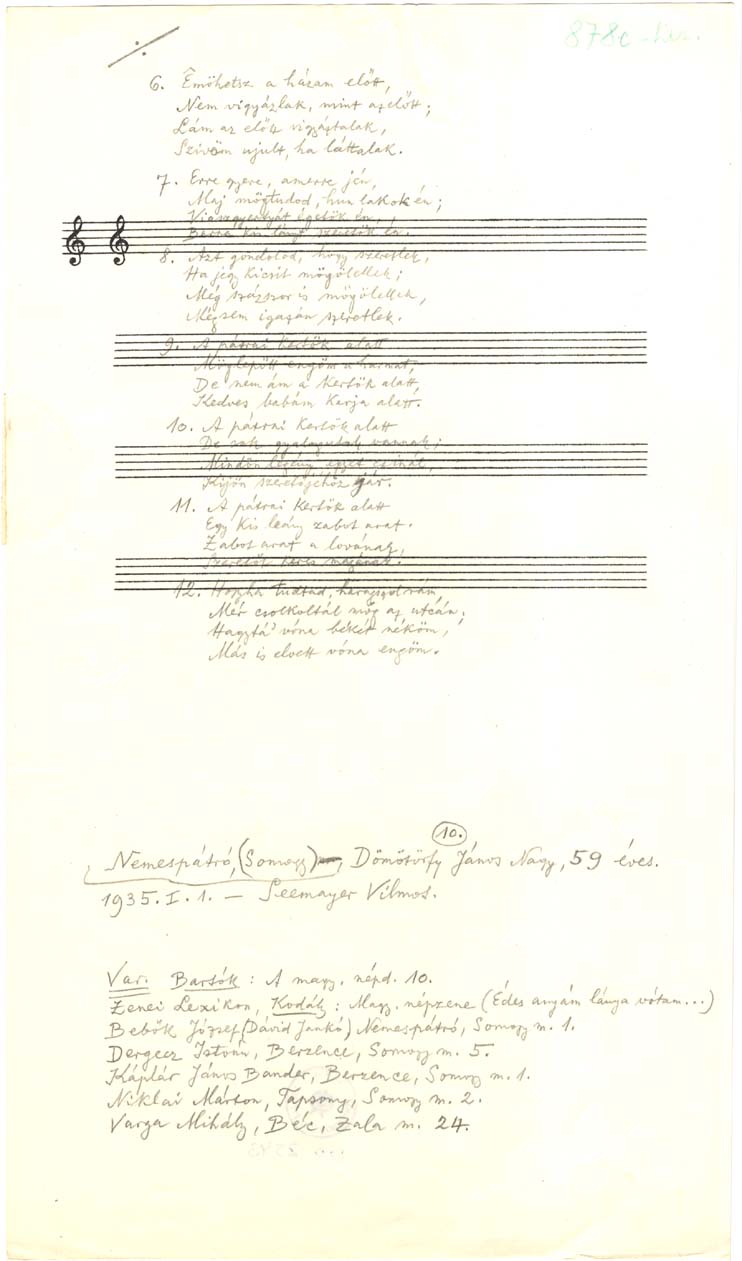 ./.
878c
6. Emöhetsz a házam előtt,
Nem vigyázlak, mint azelőtt;
Lám az előtt vigyáztalak,
Szivöm ujult, ha láttalak.
7. Erre gyere, amerre jén,
Maj mögtudod, hun lakok én;
Viaszgyertyát égetök én,
Barna kis lányt szeretök én.
8. Azt gondolod, hogy szeretlek,
Ha jégy kicsit mögölellek;
Még százszor is mögölellek,
Mégsem igazán szeretlek.
9. A pátrai kertök alatt
Möglepött engöm a harmat,
De nem ám a kertök alatt,
Kedves babám karja alatt.
10. A pátrai kertök alatt
De sok gyalogutak vannak;
Mindön legény egyet csinál,
Kijön szeretőjéhöz jár.
11. A pátrai kertök alatt
Egy kis leány zabot arat.
Zabot arat a lovának,
Szeretőt keres magának.
12. Hogyha tudtad, haragszol rám,
Mér csolkoltál mög az utcán;
Hagytá' vóna békét néköm,
Más is elvett vóna engöm.
10.
Nemespátró, (Somogy), Dömötörfy János Nagy, 59 éves.
1935. I. 1. — Seemayer Vilmos.
Var. Bartók: A magy. népd. 10.
Zenei Lexikon, Kodály: Magy. népzene (Édes anyám lánya vótam...)
Bebők József (Dávid Jankó) Nemespátró, Somogy m. 1.
Dergecz István, Berzence, Somogy m. 5.
Káplár János Bander, Berzence, Somogy m. 1.
Niklai Márton, Tapsony, Somogy m. 2.
Varga Mihály, Béc, Zala m. 24.